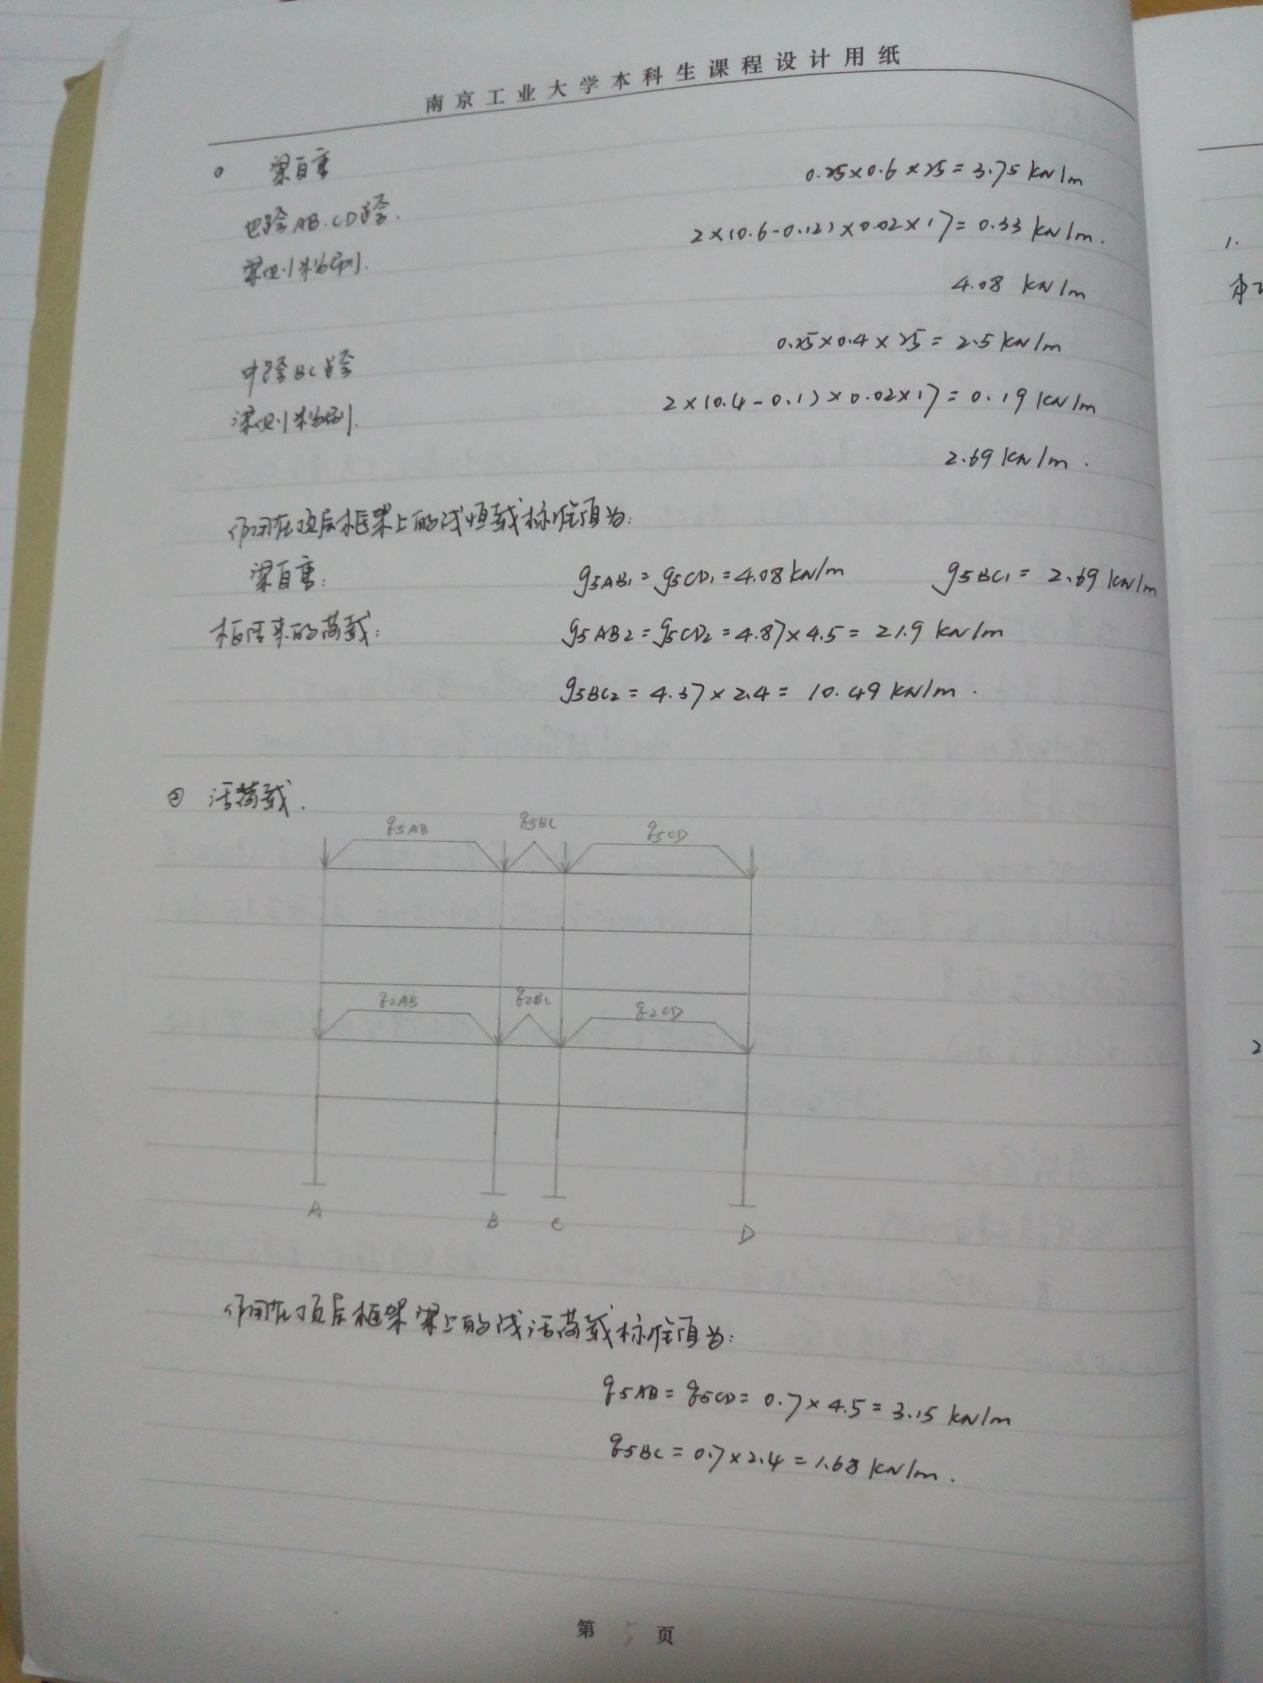 南京工业大学本科生课程设计用纸
梁自重 0.25×0.6×25=3.75 kN/m
边跨AB.CD跨.
2×(0.6-0.12)×0.02×17=0.33 kN/m.
梁侧粉刷.
4.08 kN/m
0.25×0.4×25=2.5 kN/m
中跨BC跨
2×(0.4-0.1)×0.02×17=0.19 kN/m
梁侧粉刷.
2.69 kN/m.
作用在顶层框架上的线恒载标准值为:
梁自重: g5AB1=g5CD1=4.08kN/m g5BC1=2.69 kN/m
板传来的荷载: g5AB2=g5CD2=4.87×4.5=21.9 kN/m
g5BC2=4.37×2.4=10.49 kN/m.
② 活荷载.
q5AB q5BC q5CD
q2AB q2BC q2CD
A B C D
作用在顶层框架梁上的线活荷载标准值为:
q5AB=q5CD=0.7×4.5=3.15 kN/m
q5BC=0.7×2.4=1.68 kN/m.
第 5 页
1.
2